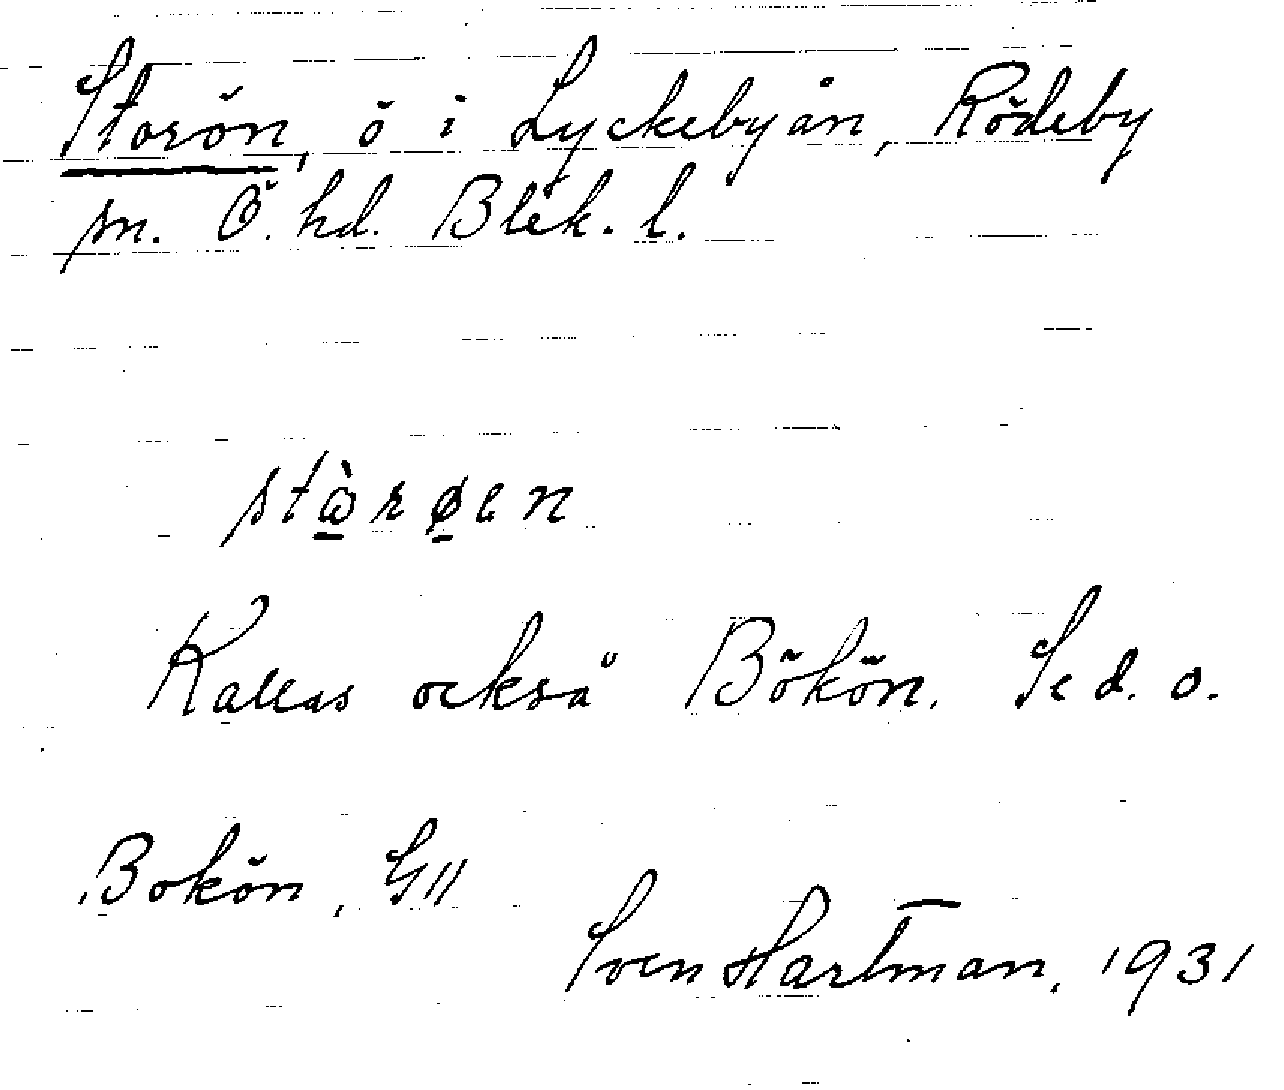 Storön, ö i Lyckebyån, Rödeby
sn. Ö. hd. Blek. l.
stὼrøen
Kallas också Bökön. Se d. o.
Bokön, G11
Sven Hartman, 1931